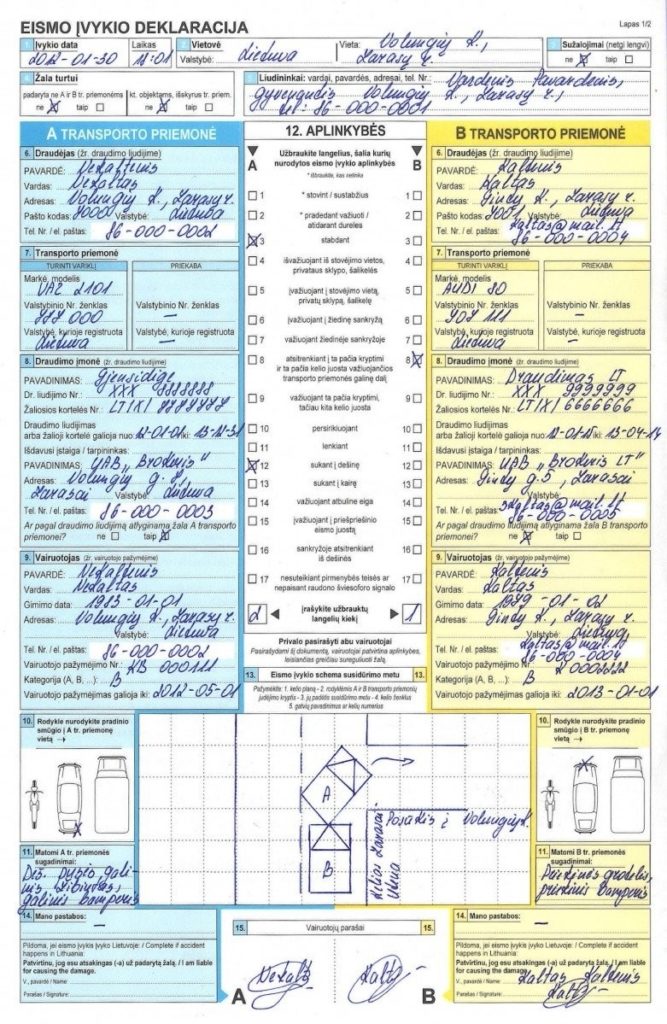 EISMO ĮVYKIO DEKLARACIJA
Lapas 1/2
1 Įvykio data
2012-01-30
Laikas
11:01
2 Vietovė
Valstybė: Lietuva
Vieta: Volungių k.,
Zarasų r.
3 Sužalojimai (netgi lengvi)
ne X taip
4 Žala turtui
padaryta ne A ir B tr. priemonėms
ne X taip
kt. objektams, išskyrus tr. priem.
ne X taip
5 Liudininkai: vardai, pavardės, adresai, tel. Nr.: Vardenis Pavardenis,
gyvenantis Volungių k., Zarasų r.,
tel.: 86-000-0001
A TRANSPORTO PRIEMONĖ
6. Draudėjas (žr. draudimo liudijime)
PAVARDĖ: Nekaltenis
Vardas: Nekaltas
Adresas: Volungių k., Zarasų r.
Pašto kodas: Valstybė: Lietuva
Tel. Nr. / el. paštas: 86-000-0002
7. Transporto priemonė
TURINTI VARIKLĮ
PRIEKABA
Markė, modelis
VAZ 2101
Valstybinio Nr. ženklas
000
Valstybė, kurioje registruota
Lietuva
Valstybinio Nr. ženklas
–
Valstybė, kurioje registruota
–
8. Draudimo įmonė (žr. draudimo liudijime)
PAVADINIMAS: Gjensidige
Dr. liudijimo Nr.: XXX
Žaliosios kortelės Nr.: LT/X/
Draudimo liudijimas
arba žalioji kortelė galioja nuo: 12-01-01 iki: 13-12-31
Išdavusi įstaiga / tarpininkas:
PAVADINIMAS: UAB „Brokeris"
Adresas: Volungių g. 8,
Zarasai Valstybė: Lietuva
Tel. Nr. / el. paštas: 86-000-0003
Ar pagal draudimo liudijimą atlyginama žala A transporto
priemonei? ne taip X
9. Vairuotojas (žr. vairuotojo pažymėjime)
PAVARDĖ: Nekaltenis
Vardas: Nekaltas
Gimimo data: 1983-01-01
Adresas: Volungių k., Zarasų r.
Valstybė: Lietuva
Tel. Nr. / el. paštas: 86-000-0002
Vairuotojo pažymėjimo Nr.: KB 000111
Kategorija (A, B, ...): B
Vairuotojo pažymėjimas galioja iki: 2012-05-01
12. APLINKYBĖS
A B
Užbraukite langelius, šalia kurių
nurodytos eismo įvykio aplinkybės
* išbraukite, kas netinka
1 * stovint / sustabžius 1
2 * pradedant važiuoti / 2
atidarant dureles
X 3 stabdant 3
4 išvažiuojant iš stovėjimo vietos, 4
privataus sklypo, šalikelės
5 įvažiuojant į stovėjimo vietą, 5
privatų sklypą, šalikelę
6 įvažiuojant į žiedinę sankryžą 6
7 važiuojant žiedinėje sankryžoje 7
8 atsitrenkiant į ta pačia kryptimi 8 X
ir ta pačia kelio juosta važiuojančios
transporto priemonės galinę dalį
9 važiuojant ta pačia kryptimi, 9
tačiau kita kelio juosta
10 persirikiuojant 10
11 lenkiant 11
X 12 sukant į dešinę 12
13 sukant į kairę 13
14 važiuojant atbuline eiga 14
15 įvažiuojant į priešpriešinio 15
eismo juostą
16 sankryžoje atsitrenkiant 16
iš dešinės
17 nesuteikiant pirmenybės teisės ar 17
nepaisant raudono šviesoforo signalo
2 įrašykite užbrauktų 1
langelių kiekį
Privalo pasirašyti abu vairuotojai
Pasirašydami šį dokumentą, vairuotojai patvirtina aplinkybes,
leisiančias greičiau sureguliuoti žalą.
B TRANSPORTO PRIEMONĖ
6. Draudėjas (žr. draudimo liudijime)
PAVARDĖ: Kaltenis
Vardas: Kaltas
Adresas: Zarasų r.
Pašto kodas: Valstybė: Lietuva
Tel. Nr. / el. paštas: kaltas@mail.lt
86-000-0004
7. Transporto priemonė
TURINTI VARIKLĮ
PRIEKABA
Markė, modelis
AUDI 80
Valstybinio Nr. ženklas
111
Valstybė, kurioje registruota
Lietuva
Valstybinio Nr. ženklas
–
Valstybė, kurioje registruota
–
8. Draudimo įmonė (žr. draudimo liudijime)
PAVADINIMAS: Draudimas LT
Dr. liudijimo Nr.: XXX 9999999
Žaliosios kortelės Nr.: LT/X/ 6666666
Draudimo liudijimas
arba žalioji kortelė galioja nuo: 12-01-15 iki: 13-04-14
Išdavusi įstaiga / tarpininkas:
PAVADINIMAS: UAB „Brokeris LT"
Adresas: g. 5, Zarasai
Valstybė: Lietuva
Tel. Nr. / el. paštas: kaltas@mail.lt
86-000-0005
Ar pagal draudimo liudijimą atlyginama žala B transporto
priemonei? ne X taip
9. Vairuotojas (žr. vairuotojo pažymėjime)
PAVARDĖ: Kaltenis
Vardas: Kaltas
Gimimo data: 1989-01-02
Adresas: Zarasų r.
Valstybė: Lietuva,
Tel. Nr. / el. paštas: kaltas@mail.lt
86-000-0004
Vairuotojo pažymėjimo Nr.:
Kategorija (A, B, ...): B
Vairuotojo pažymėjimas galioja iki: 2013-01-01
13. Eismo įvykio schema susidūrimo metu 13.
Pažymėkite: 1. kelio planą - 2. rodyklėmis A ir B transporto priemonių
judėjimo kryptis - 3. jų padėtis susidūrimo metu - 4. kelio ženklus
5. gatvių pavadinimus ar kelių numerius
10. Rodykle nurodykite pradinio
smūgio į A tr. priemonę
vietą →
X
A
B
Posūkis į Volungių k.
Kelias Zarasai
Utena
10. Rodykle nurodykite pradinio
smūgio į B tr. priemonę
vietą →
X
11. Matomi A tr. priemonės
sugadinimai:
gali-
nis žibintas,
galinis bamperis
11. Matomi B tr. priemonės
sugadinimai:
Priekinės grotelės,
priekinis bamperis
14. Mano pastabos:
–
Pildoma, jei eismo įvykis įvyko Lietuvoje: / Complete if accident
happens in Lithuania:
Patvirtinu, jog esu atsakingas (-a) už padarytą žalą. / I am liable
for causing the damage.
V., pavardė / Name
Parašas / Signature:
15. Vairuotojų parašai 15.
A B
14. Mano pastabos:
–
Pildoma, jei eismo įvykis įvyko Lietuvoje: / Complete if accident
happens in Lithuania:
Patvirtinu, jog esu atsakingas (-a) už padarytą žalą. / I am liable
for causing the damage.
V., pavardė / Name Kaltas Kaltenis
Parašas / Signature: